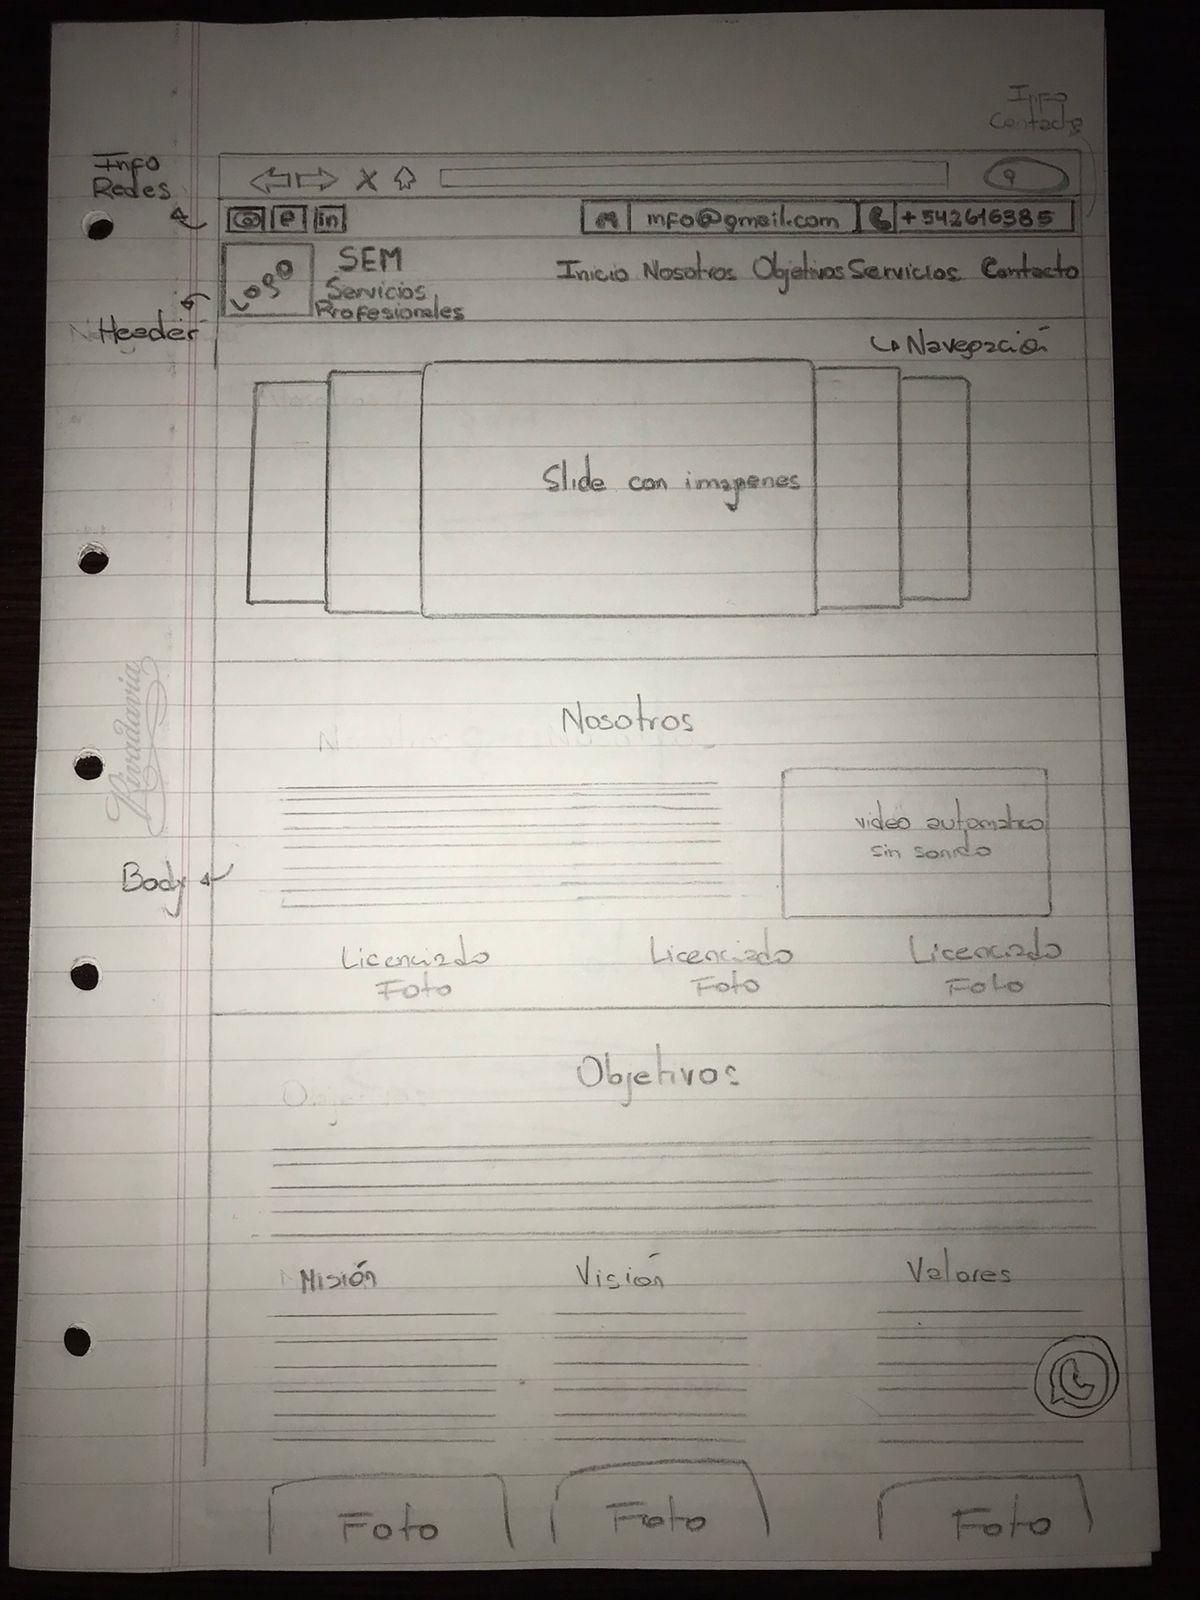 Info
Contacto
Info
Redes
in
info@gmail.com
+542616385
Logo
SEM
Servicios
Profesionales
Inicio Nosotros Objetivos Servicios Contacto
Header
Navegación
Slide con imagenes
Nosotros
Rivadavia
video automatico
sin sonido
Body
Licenciado
Foto
Licenciado
Foto
Licenciado
Foto
Objetivos
Misión
Visión
Valores
Foto
Foto
Foto